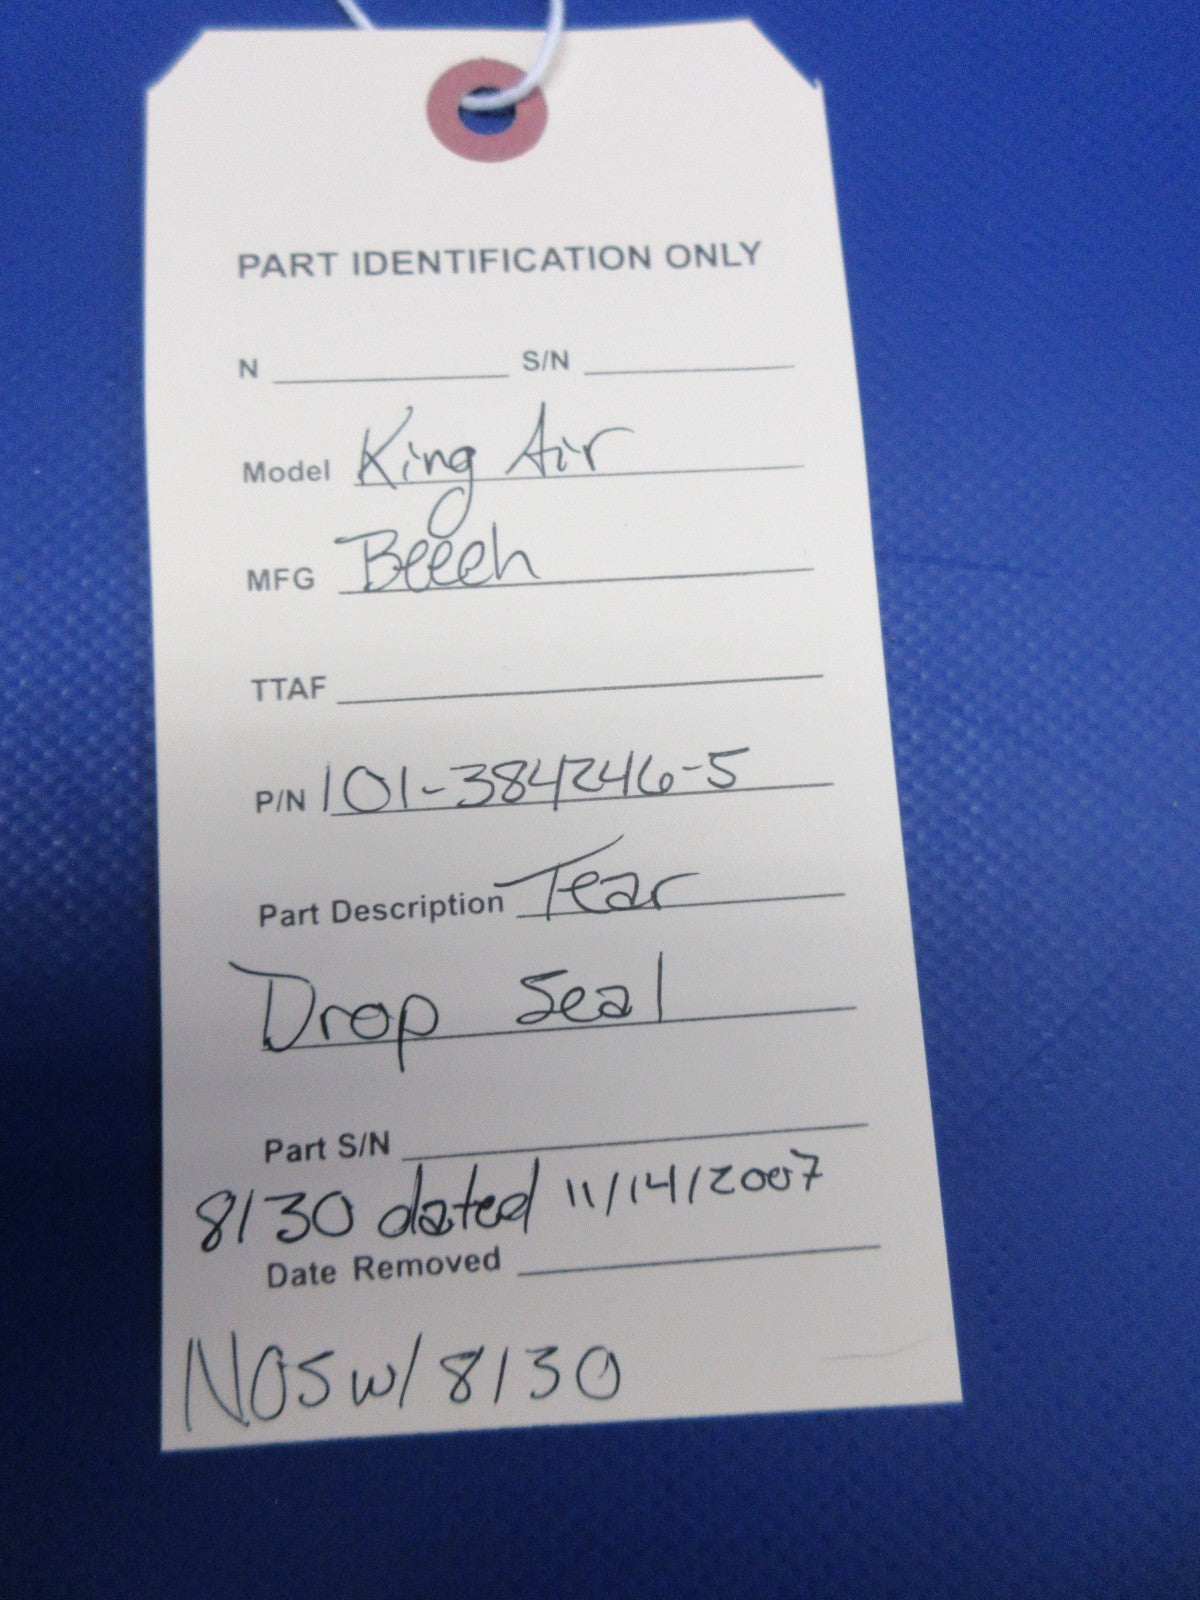 PART IDENTIFICATION ONLY
N S/N
Model King Air
MFG Beech
TTAF
P/N 101-384246-5
Part Description Tear
Drop Seal
Part S/N
8130 dated 11/14/2007
Date Removed
NOS w/ 8130